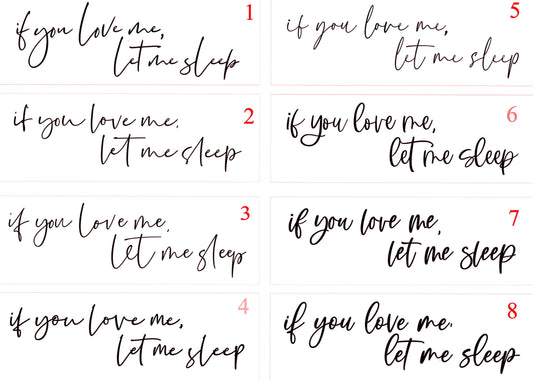 if you love me,
let me sleep
1
if you love me.
let me sleep
2
if you love me,
let me sleep
3
if you love me,
let me sleep
4
if you love me,
let me sleep
5
if you love me,
let me sleep
6
if you love me,
let me sleep
7
if you love me.
let me sleep
8